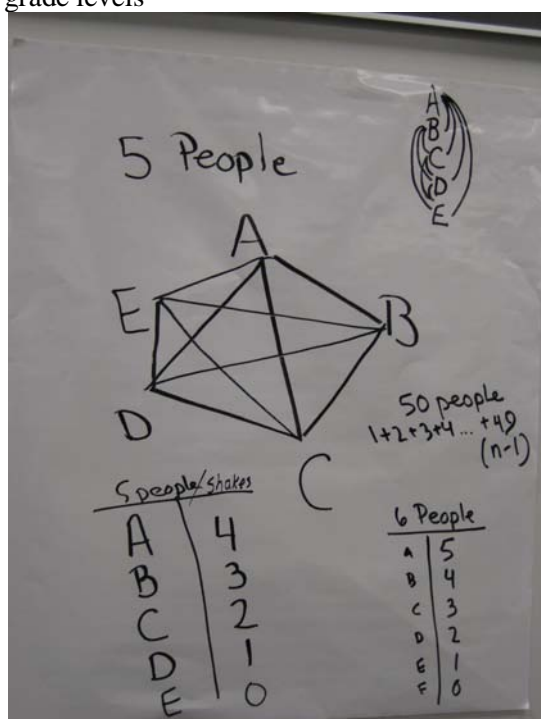 grade levels
5 People
A
B
C
D
E
A
E
B
D
C
50 people
1+2+3+4... +49
(n-1)
5 people/shakes
A 4
B 3
C 2
D 1
E 0
6 People
A 5
B 4
C 3
D 2
E 1
F 0